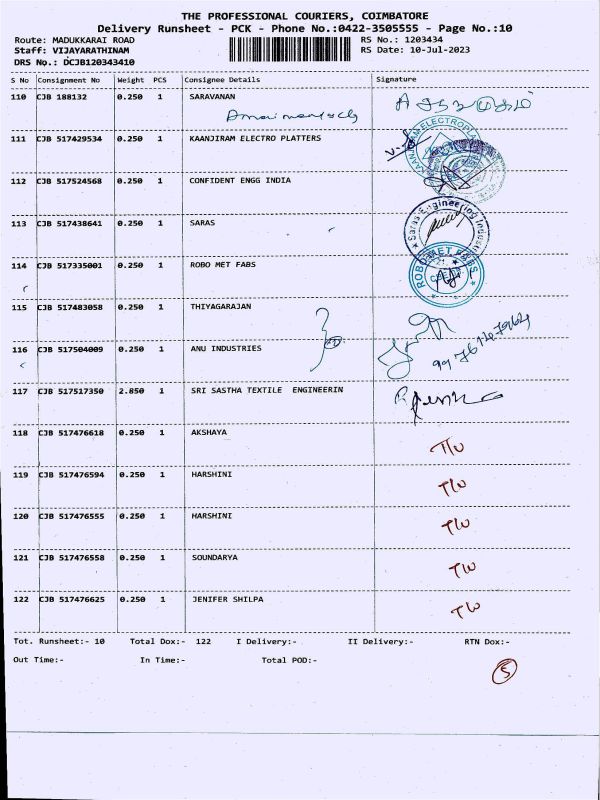 THE PROFESSIONAL COURIERS, COIMBATORE
Delivery Runsheet - PCK - Phone No.:0422-3505555 - Page No.:10
Route: MADUKKARAI ROAD
RS No.: 1203434
Staff: VIJAYARATHINAM
RS Date: 10-Jul-2023
DRS No.: DCJB120343410
S No Consignment No Weight PCS Consignee Details Signature
110 CJB 188132 0.250 1 SARAVANAN
111 CJB 517429534 0.250 1 KAANJIRAM ELECTRO PLATTERS
112 CJB 517524568 0.250 1 CONFIDENT ENGG INDIA
113 CJB 517438641 0.250 1 SARAS
Saras Engineering Indust
114 CJB 517335001 0.250 1 ROBO MET FABS
ROBO MET FABS
115 CJB 517483058 0.250 1 THIYAGARAJAN
116 CJB 517504009 0.250 1 ANU INDUSTRIES
117 CJB 517517350 2.850 1 SRI SASTHA TEXTILE ENGINEERIN
118 CJB 517476618 0.250 1 AKSHAYA
119 CJB 517476594 0.250 1 HARSHINI
T/U
120 CJB 517476555 0.250 1 HARSHINI
T/U
121 CJB 517476558 0.250 1 SOUNDARYA
T/U
122 CJB 517476625 0.250 1 JENIFER SHILPA
T/U
Tot. Runsheet:- 10 Total Dox:- 122 I Delivery:- II Delivery:- RTN Dox:-
Out Time:- In Time:- Total POD:-
5